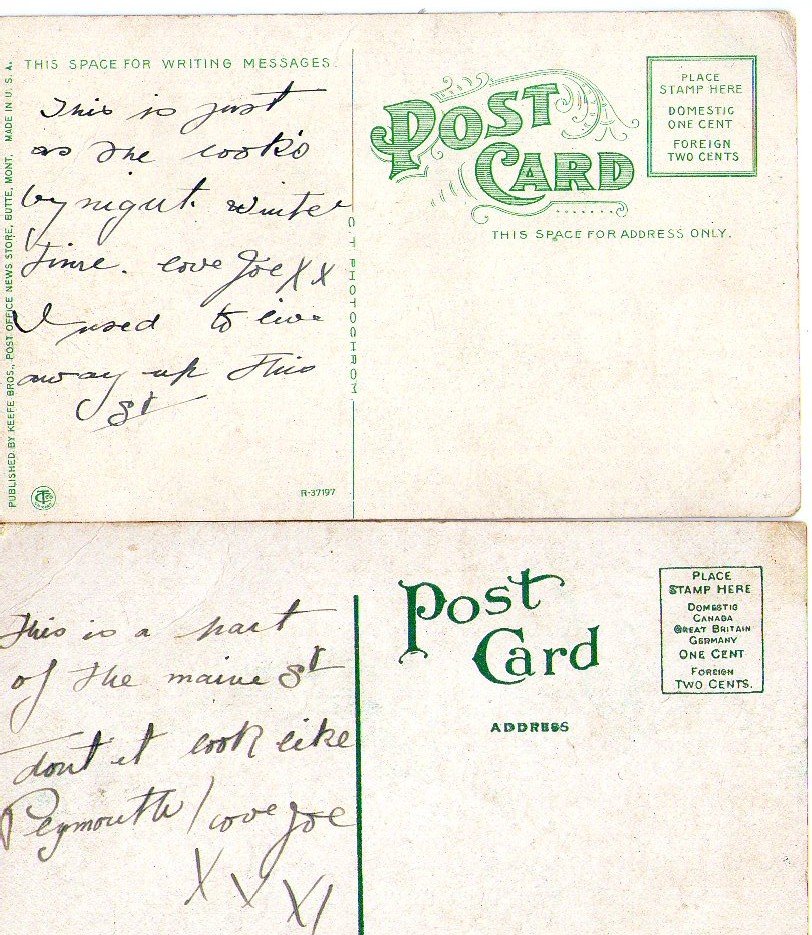 THIS SPACE FOR WRITING MESSAGES.
This is just
as she look's
by night. winter
time. love Joe X X
I used to live
away up this
St
PUBLISHED BY KEEFE BROS., POST OFFICE NEWS STORE, BUTTE, MONT. MADE IN U. S. A.
R-37197
C T PHOTOCHROM
POST CARD
PLACE
STAMP HERE
DOMESTIC
ONE CENT
FOREIGN
TWO CENTS
THIS SPACE FOR ADDRESS ONLY.
This is a part
of the maine St
dont it look like
Peymouth / love Joe
X X X /
Post Card
PLACE
STAMP HERE
DOMESTIC
CANADA
GREAT BRITAIN
GERMANY
ONE CENT
FOREIGN
TWO CENTS.
ADDRESS